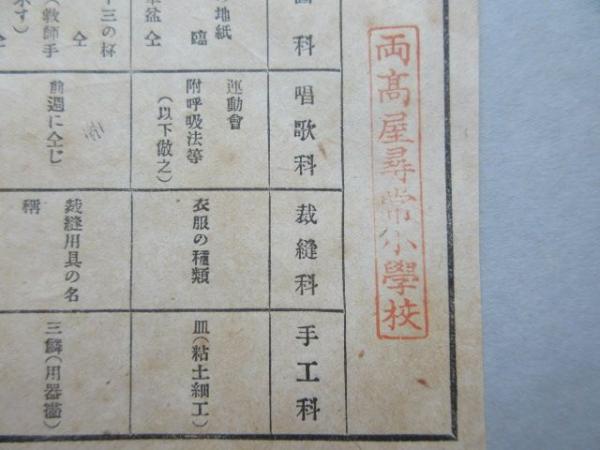 両髙屋尋常小學校
科
地紙
臨
盆仝
三の杯
仝
(敎師手
示す)
唱歌科
運動會
附呼吸法等
(以下倣之)
前週に仝じ
裁縫科
衣服の種類
裁縫用具の名
稱
手工科
皿(粘土細工)
三鱗(用器畵)